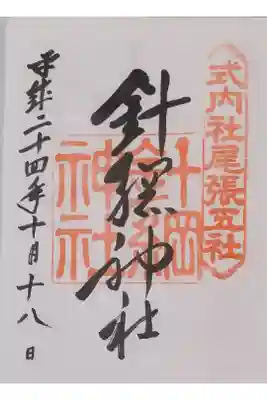 式内社尾張五社
針綱神社
針綱
神社
平成二十四年十月十八日